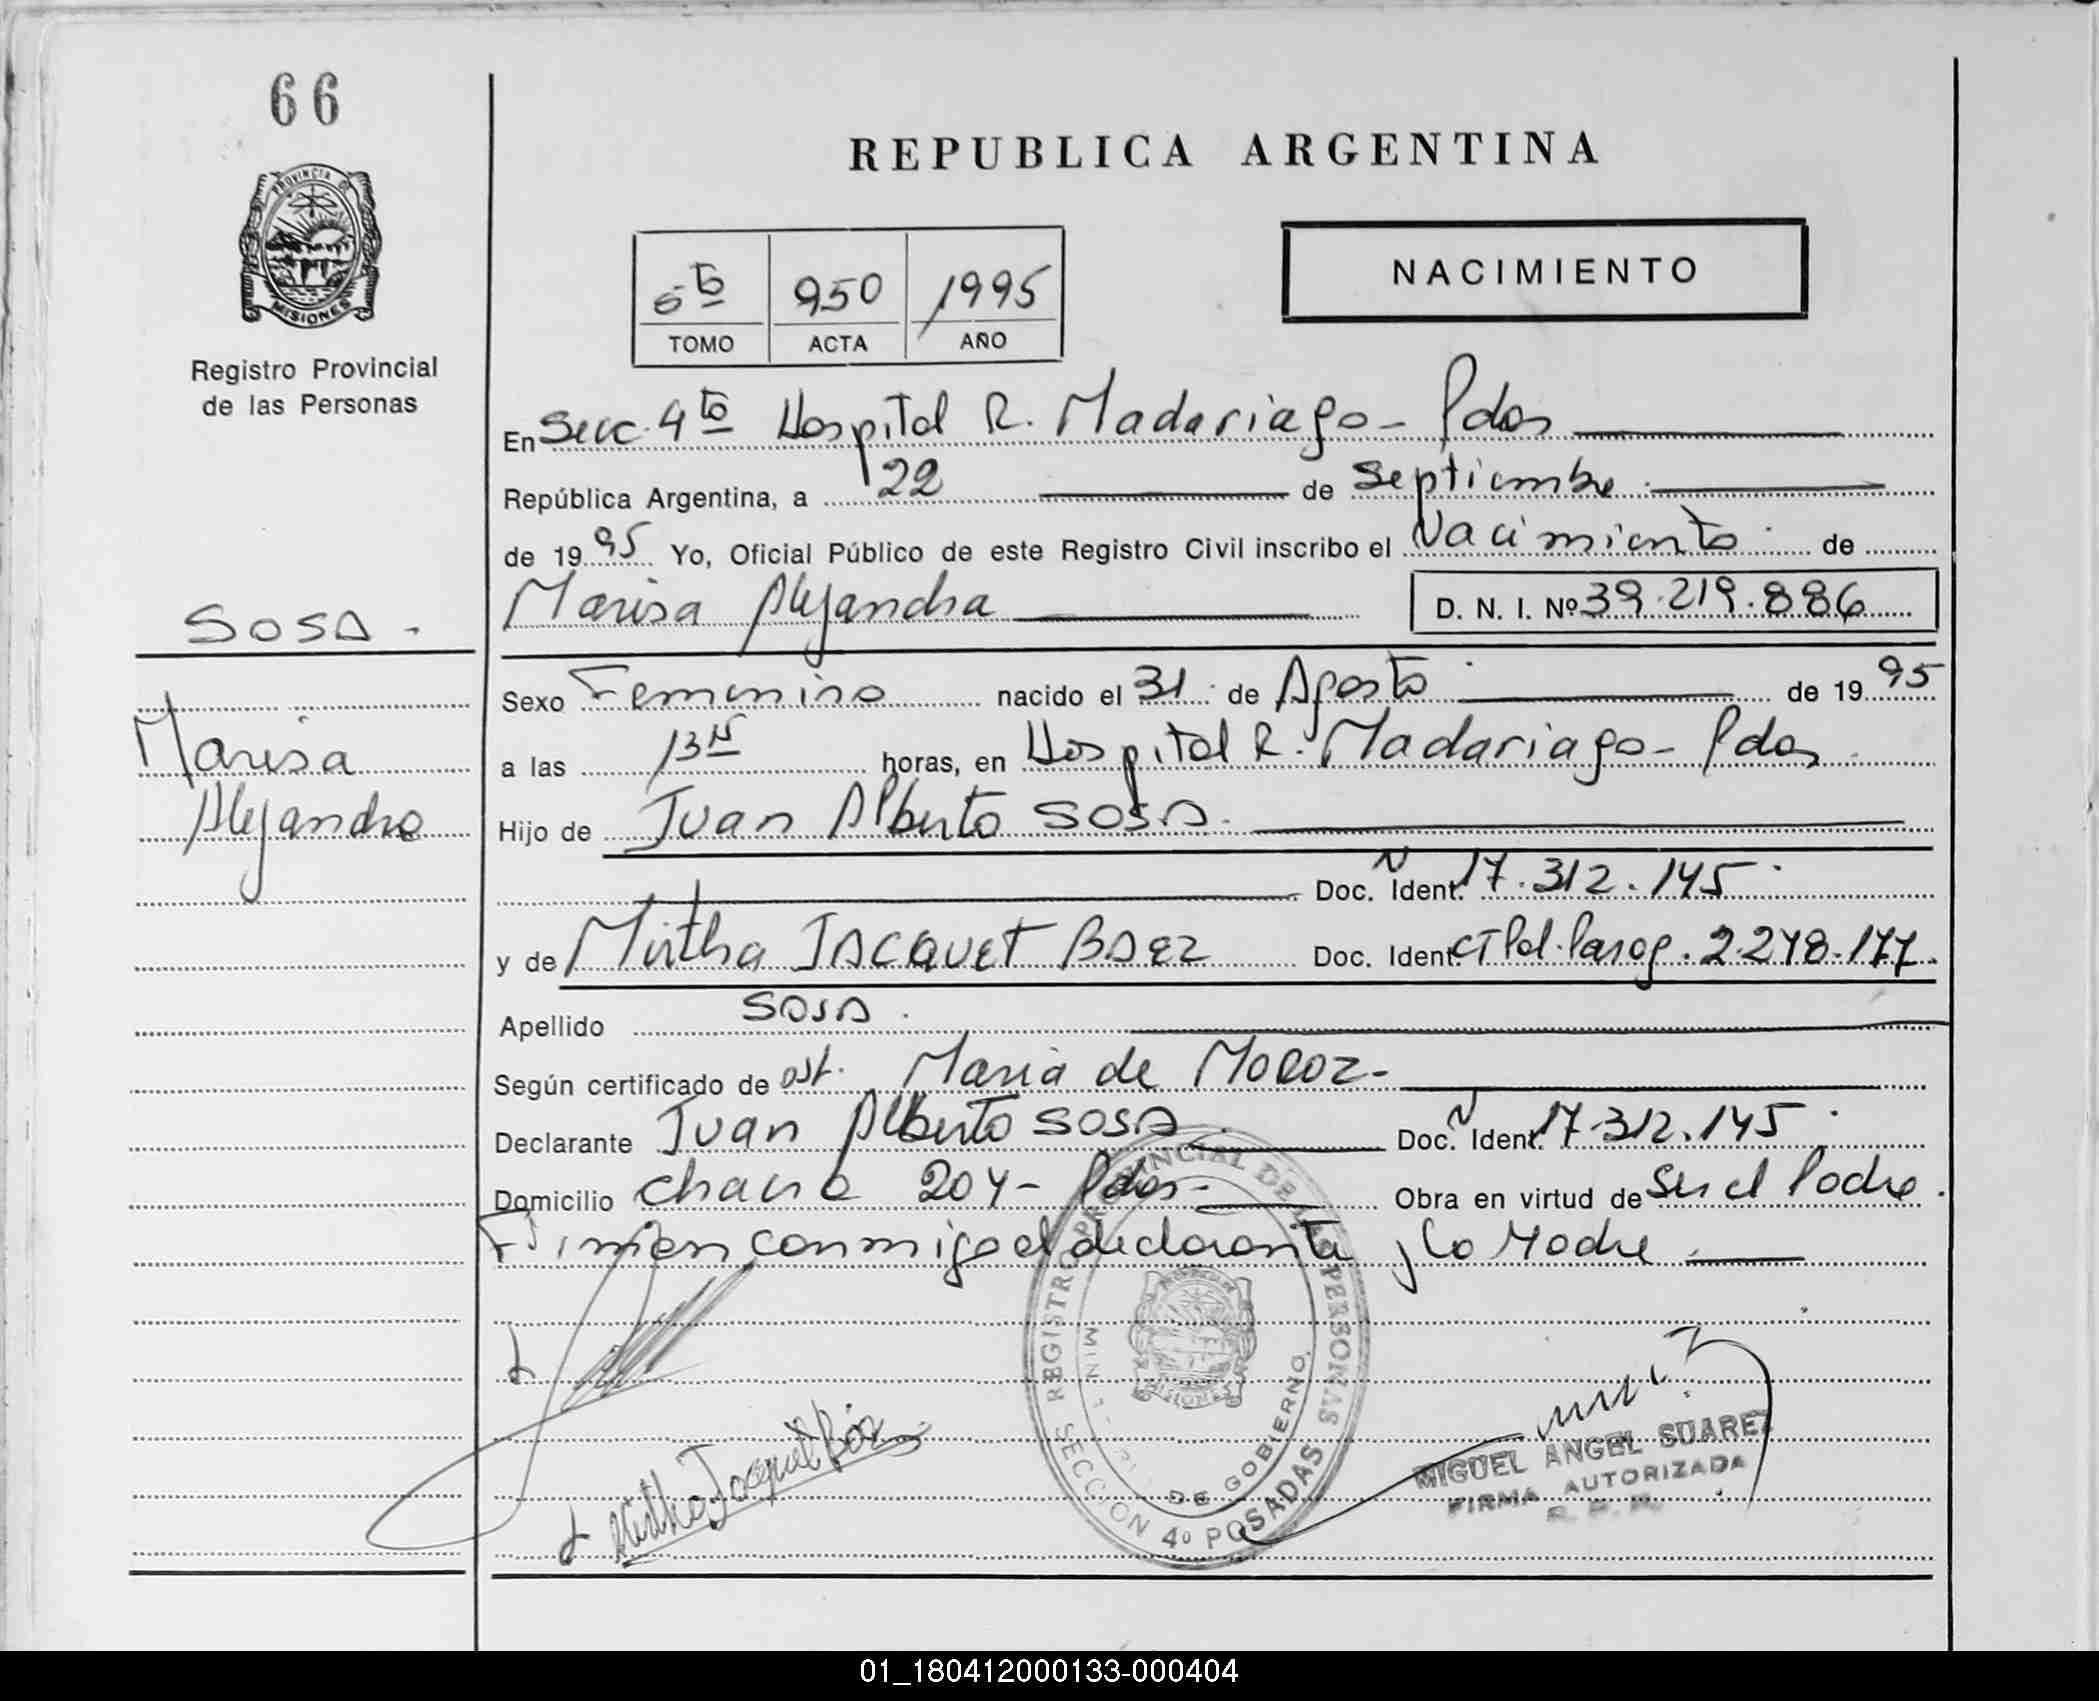 66
PROVINCIA DE
MISIONES
Registro Provincial
de las Personas
REPUBLICA ARGENTINA
NACIMIENTO
6to 950 1995
TOMO ACTA AÑO
En Secc. 4to Hospital R. Madariaga - Pdas
República Argentina, a 22 de septiembre
de 1995 Yo, Oficial Público de este Registro Civil inscribo el Nacimiento de
Marisa Alejandra D. N. I. Nº 39.219.886
SOSA.
Marisa
Alejandra
Sexo Femenino nacido el 31 de Agosto de 1995
a las 13 horas, en Hospital R. Madariaga - Pdas
Hijo de Juan Alberto SOSA.
Doc. N Ident. 17.312.145
y de Mirtha JACQUET BAEZ Doc. Ident. CI Pol. Parag. 2.278.177.
Apellido SOSA.
Según certificado de ost. Maria de MOROZ-
Declarante Juan Alberto SOSA Doc. N Ident. 17.312.145
Domicilio 204 - Pdas. Obra en virtud de ser el Padre.
Firman conmigo el declarante y la Madre
REGISTRO PROVINCIAL DE LAS PERSONAS
MISIONES
DE GOBIERNO
SECCION 4º POSADAS
Mirtha Jacquet Báez
MIGUEL ANGEL SUAREZ
FIRMA AUTORIZADA
R. P. P.
01_180412000133-000404